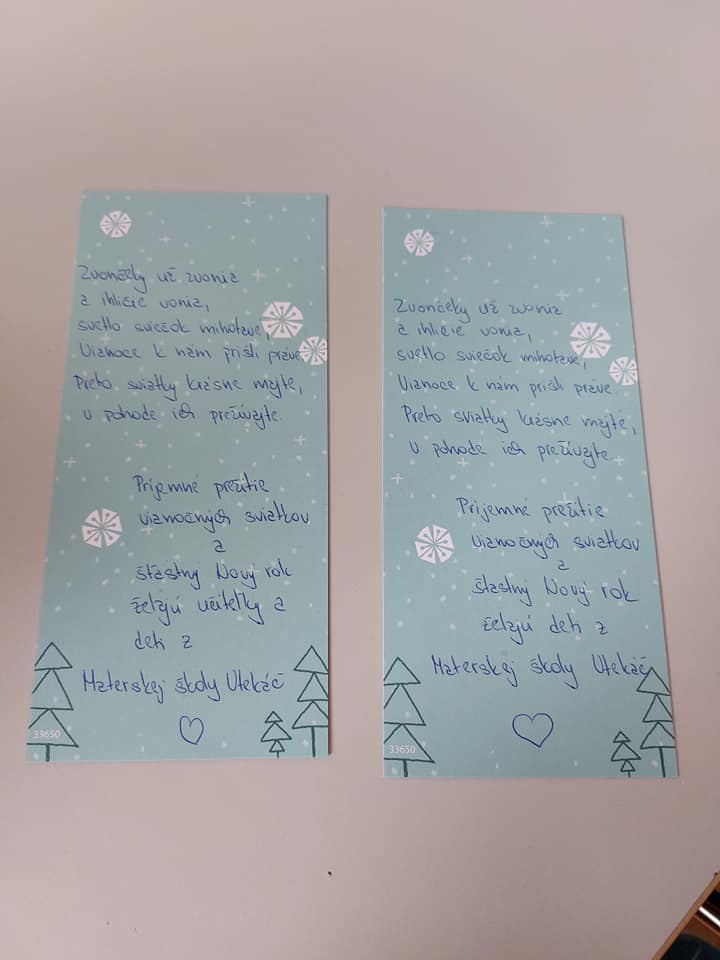 Zvončeky už zvonia
a ihličie vonia,
svetlo sviečok mihotavé,
Vianoce k nám prišli práve.
Preto sviatky krásne majte,
v pohode ich prežívajte.
Príjemné prežitie
vianočných sviatkov
a
šťastný Nový rok
želajú učiteľky a
deti z
Materskej školy Utekáč
33650
Zvončeky už zvonia
a ihličie vonia,
svetlo sviečok mihotavé,
Vianoce k nám prišli práve.
Preto sviatky krásne majte,
v pohode ich prežívajte.
Príjemné prežitie
vianočných sviatkov
a
šťastný Nový rok
želajú deti z
Materskej školy Utekáč
33650